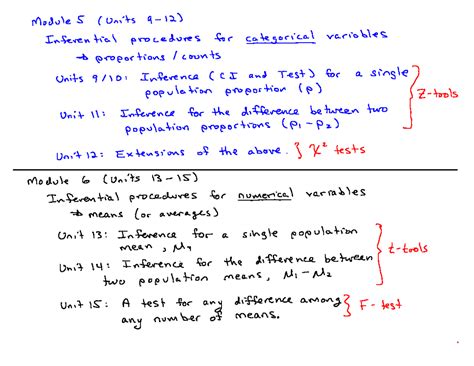 Module 5 (Units 9-12)
Inferential procedures for categorical variables
→ proportions / counts
Units 9/10: Inference (CI and Test) for a single
population proportion (p)
Unit 11: Inference for the difference between two
population proportions (p₁-p₂)
Z-tools
Unit 12: Extensions of the above. } X² tests
Module 6 (Units 13-15)
Inferential procedures for numerical variables
→ means (or averages)
Unit 13: Inference for a single population
mean, μy
Unit 14: Inference for the difference between
two population means, μ₁-μ₂
t-tools
Unit 15: A test for any difference among
any number of means. } F-test